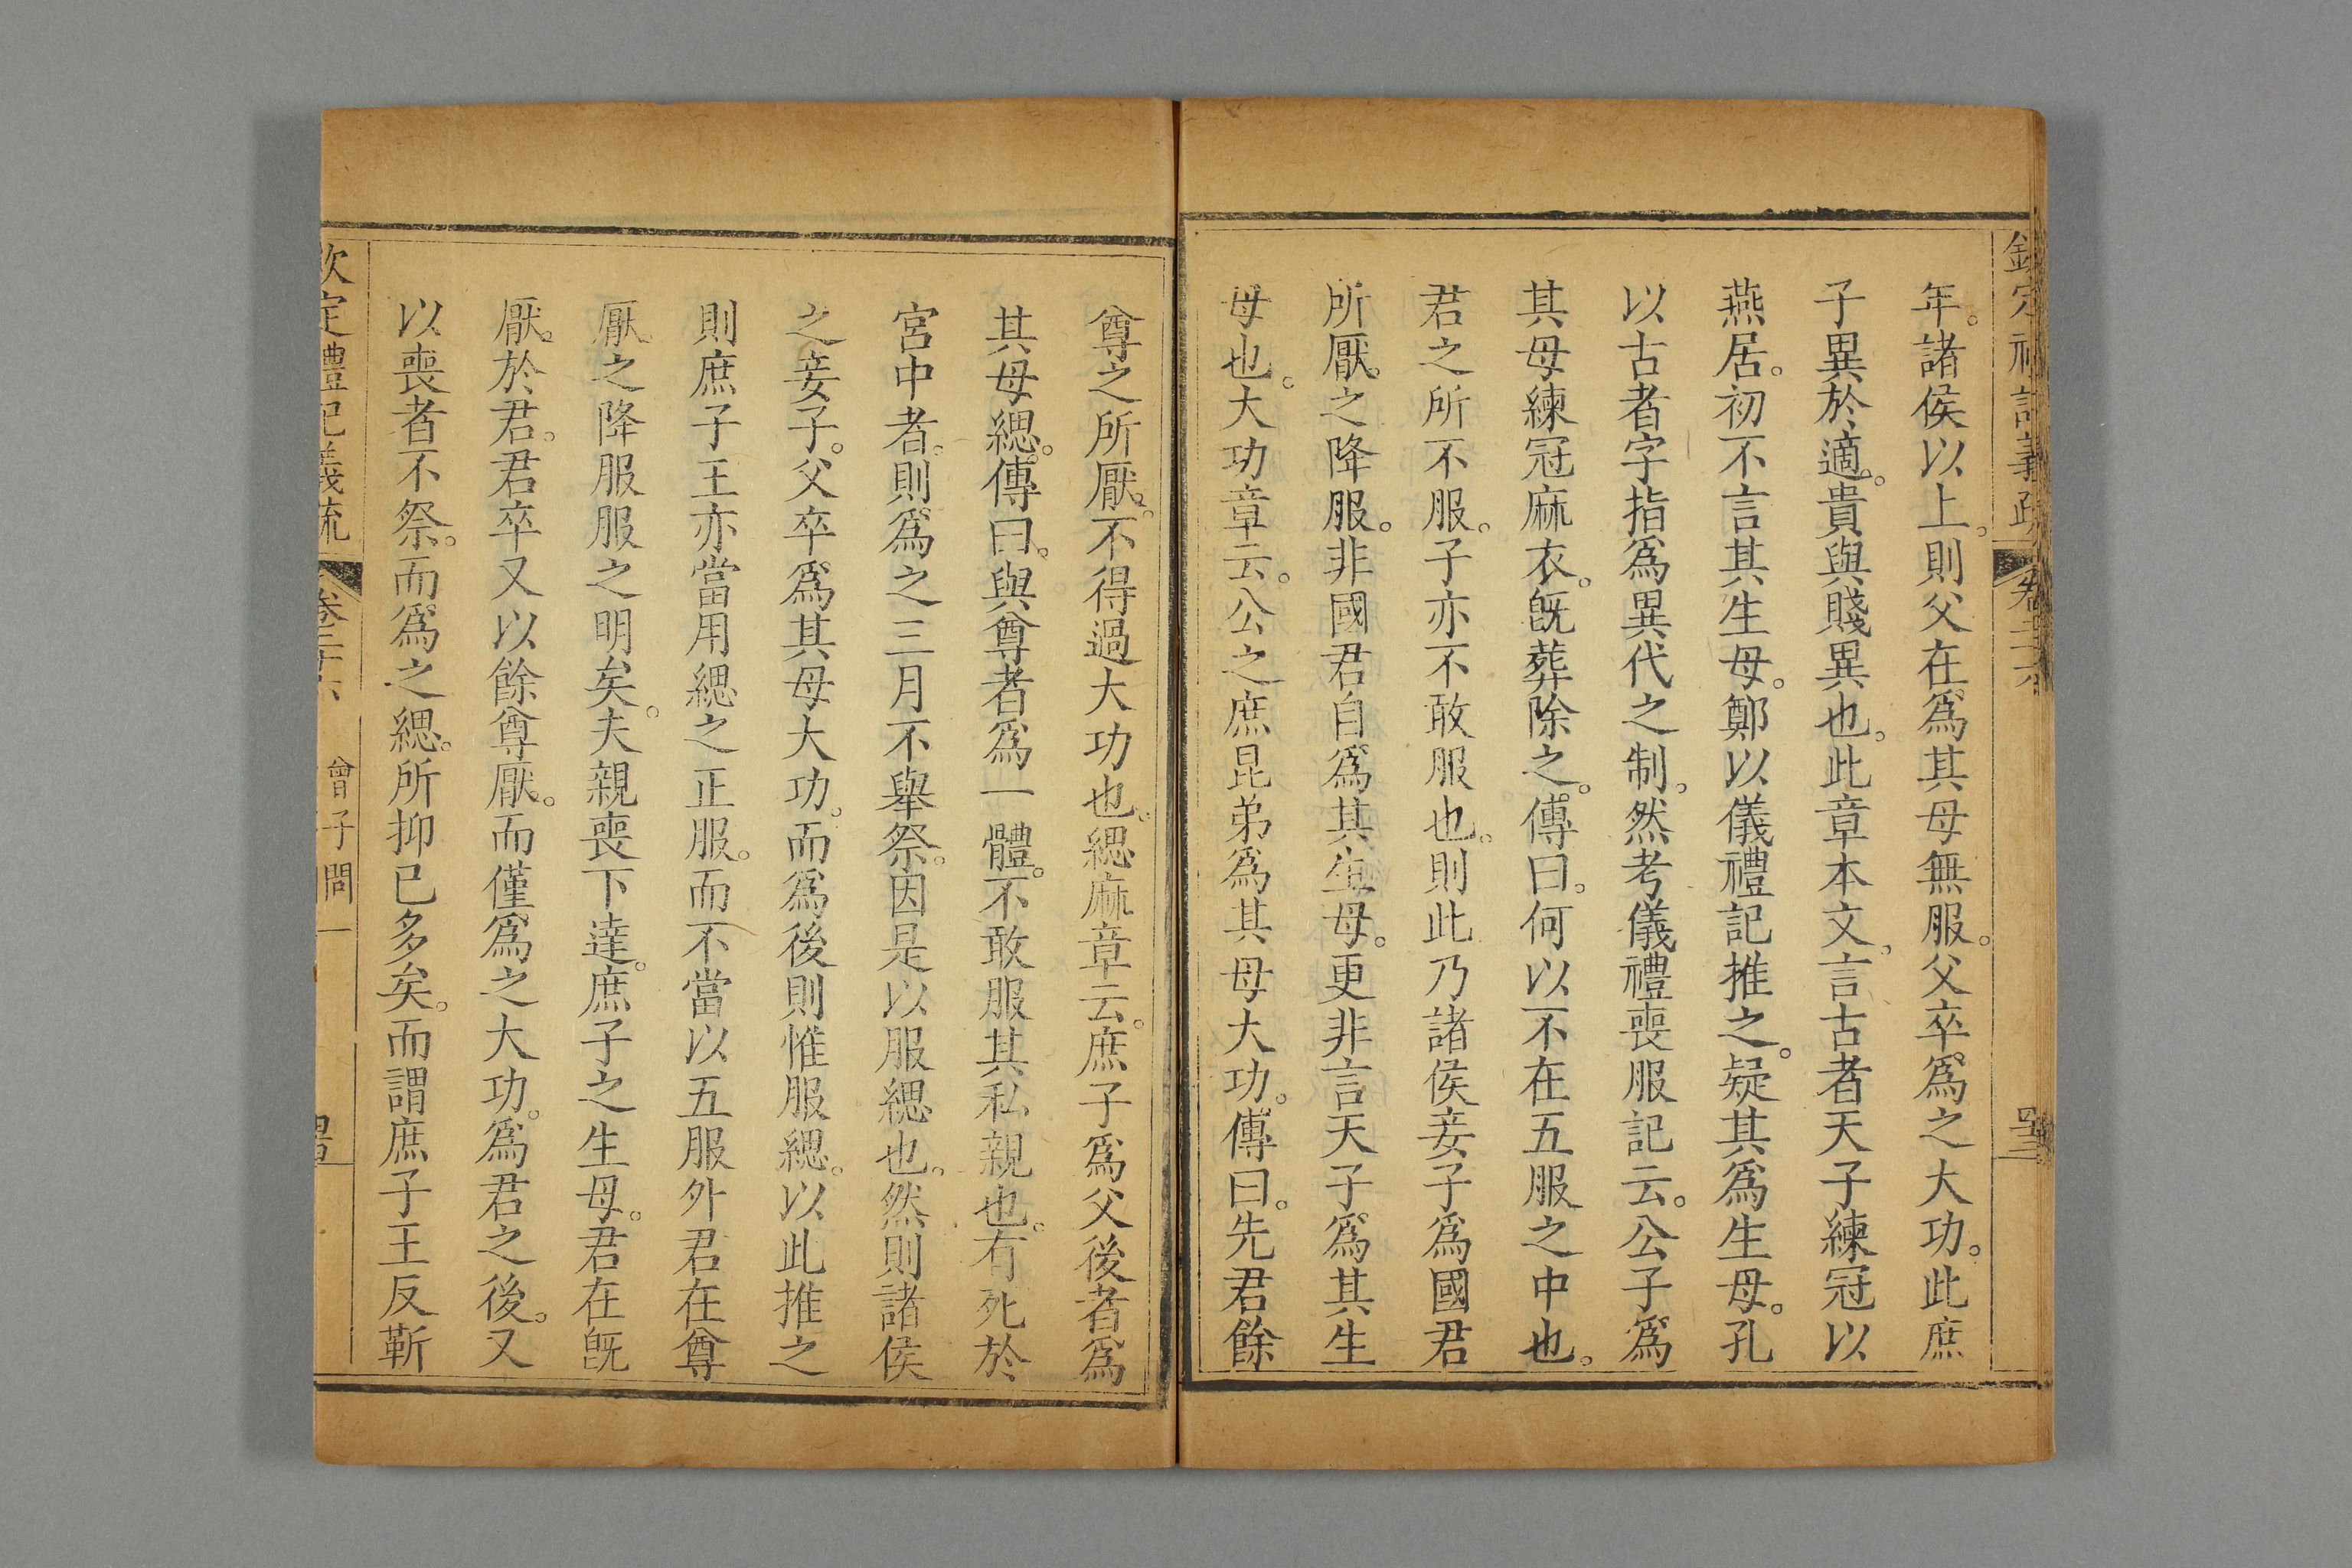 欽定禮記義疏 卷二十六
年。諸侯以上。則父在為其母無服。父卒為之大功。此庶
子異於適。貴與賤異也。此章本文。言古者天子練冠以
燕居。初不言其生母。鄭以儀禮記推之。疑其為生母。孔
以古者字指為異代之制。然考儀禮喪服記云。公子為
其母練冠麻衣。旣葬除之。傳曰。何以不在五服之中也。
君之所不服。子亦不敢服也。則此乃諸侯妾子為國君
所厭。之降服。非國君自為其生母。更非言天子為其生
母也。大功章云。公之庶昆弟為其母大功。傳曰。先君餘
尊之所厭。不得過大功也。緦麻章云。庶子為父後者為
其母緦。傳曰。與尊者為一體。不敢服其私親也。有死於
宮中者。則為之三月不舉祭。因是以服緦也。然則諸侯
之妾子。父卒為其母大功。而為後則惟服緦。以此推之
則庶子王亦當用緦之正服。而不當以五服外君在尊
厭。之降服服之明矣。夫親喪下達。庶子之生母。君在旣
厭。於君。君卒又以餘尊厭。而僅為之大功。為君之後。又
以喪者不祭。而為之緦。所抑已多矣。而謂庶子王反靳
欽定禮記義疏 卷二十六 曾子問一